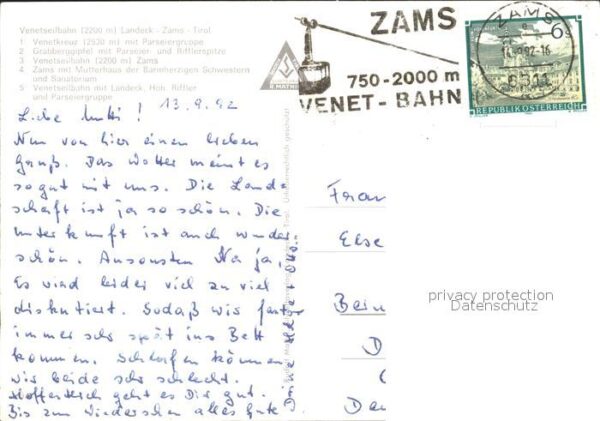 Venetseilbahn (2200 m) Landeck - Zams - Tirol
1 Venetkreuz (2520 m) mit Parseiergruppe
2 Grabberggipfel mit Parseier- und Rifflerspitze
3 Venetseilbahn (2200 m) Zams
4 Zams mit Mutterhaus der Barmherzigen Schwestern
und Sanatorium
5 Venetseilbahn mit Landeck, Hoh. Riffler
und Parseiergruppe
ZAMS
750-2000 m
VENET-BAHN
ZAMS
6511
6 S
REPUBLIK ÖSTERREICH
13.9.92
Liebe Mutti!
Nun von hier einen lieben
Gruß. Das Wetter meint es
so gut mit uns. Die Land-
schaft ist ja so schön. Die
Unterkunft ist auch wunder
schön. Ansonsten Na ja,
Es wird leider viel zu viel
diskutiert. Sodaß wir fast
immer sehr spät ins Bett
kommen. Schlafen können
wir beide sehr schlecht.
Hoffentlich geht es Dir gut.
Bis zum Wiedersehen alles Gute
Deine
Urheberrechtlich geschützt
Frau
Else
D
privacy protection
Datenschutz